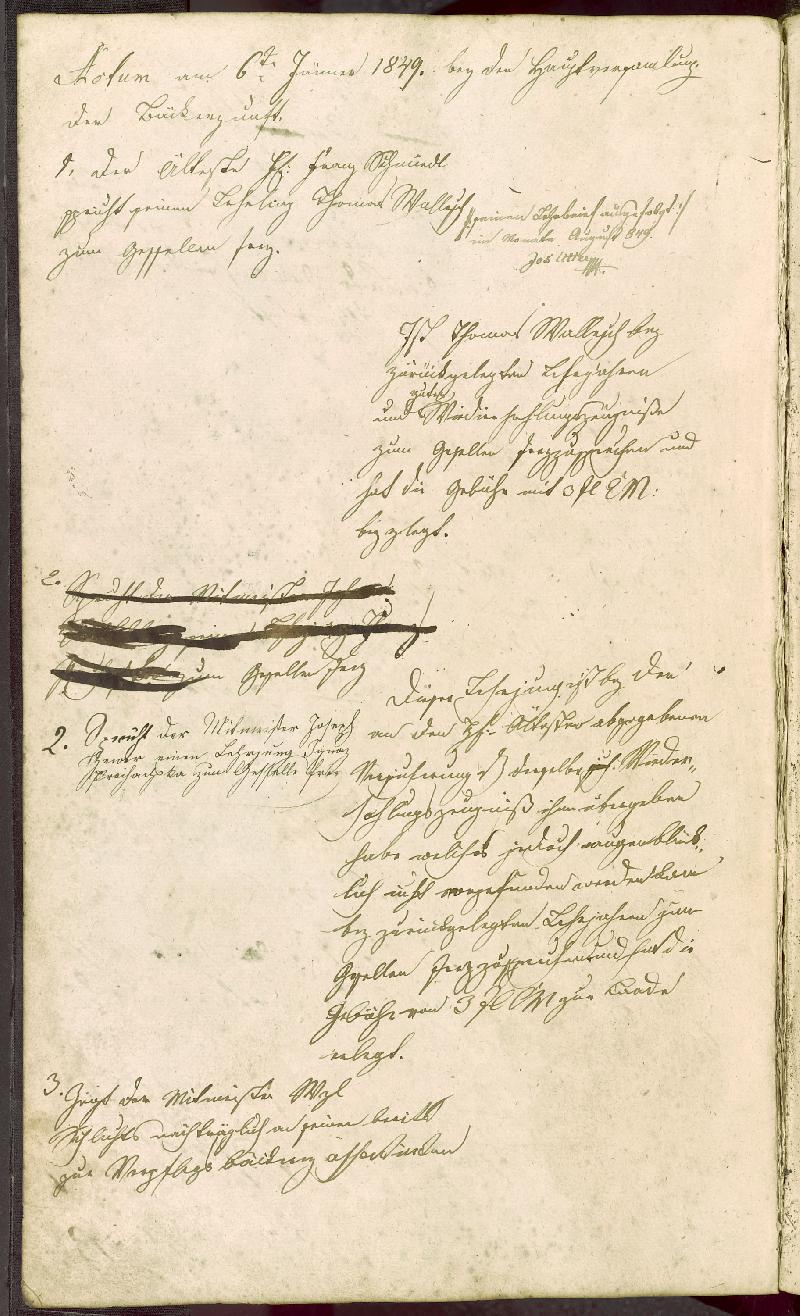 Actum am 6ten Jänner 1849. bey der Hauptversamlung
der Bäckerzunft.
1. Der Älteste H: Franz Schmiedl
spricht seinen Lehrling Thomas Wallisch
zum Gesellen frey.
seinen Lehrbrief ausgefolgt
im Monate August 849.
Jos
Ist Thomas Wallisch bey
zurückgelegten Lehrjahren
und guten Wiederhohlungszeugniße
zum Gesellen freyzusprechen und
hat die Gebühr mit 3 fl CM:
beygelegt.
2.
zum Gesellen frey
2. Spricht der Mitmeister Joseph
einen Lehrjung Ignaz
zum Geselle frey
Dieser Lehrjung ist bey der
an den H: Ältesten abgegebenen
Versicherung daß derselbe sein Wieder-
hohlungszeugniß ihm übergeben
habe welches jedoch augenblick-
lich nicht vorgefunden werden kann
bey zurückgelegten Lehrjahren zum
Gesellen freyzusprechen und hat die
Gebühr von 3 fl CM zur Lade
erlegt.
3. Zeigt der Mitmeister
nachträglich an seinen bereits
zur Verpflegs Bäckerey assentirten